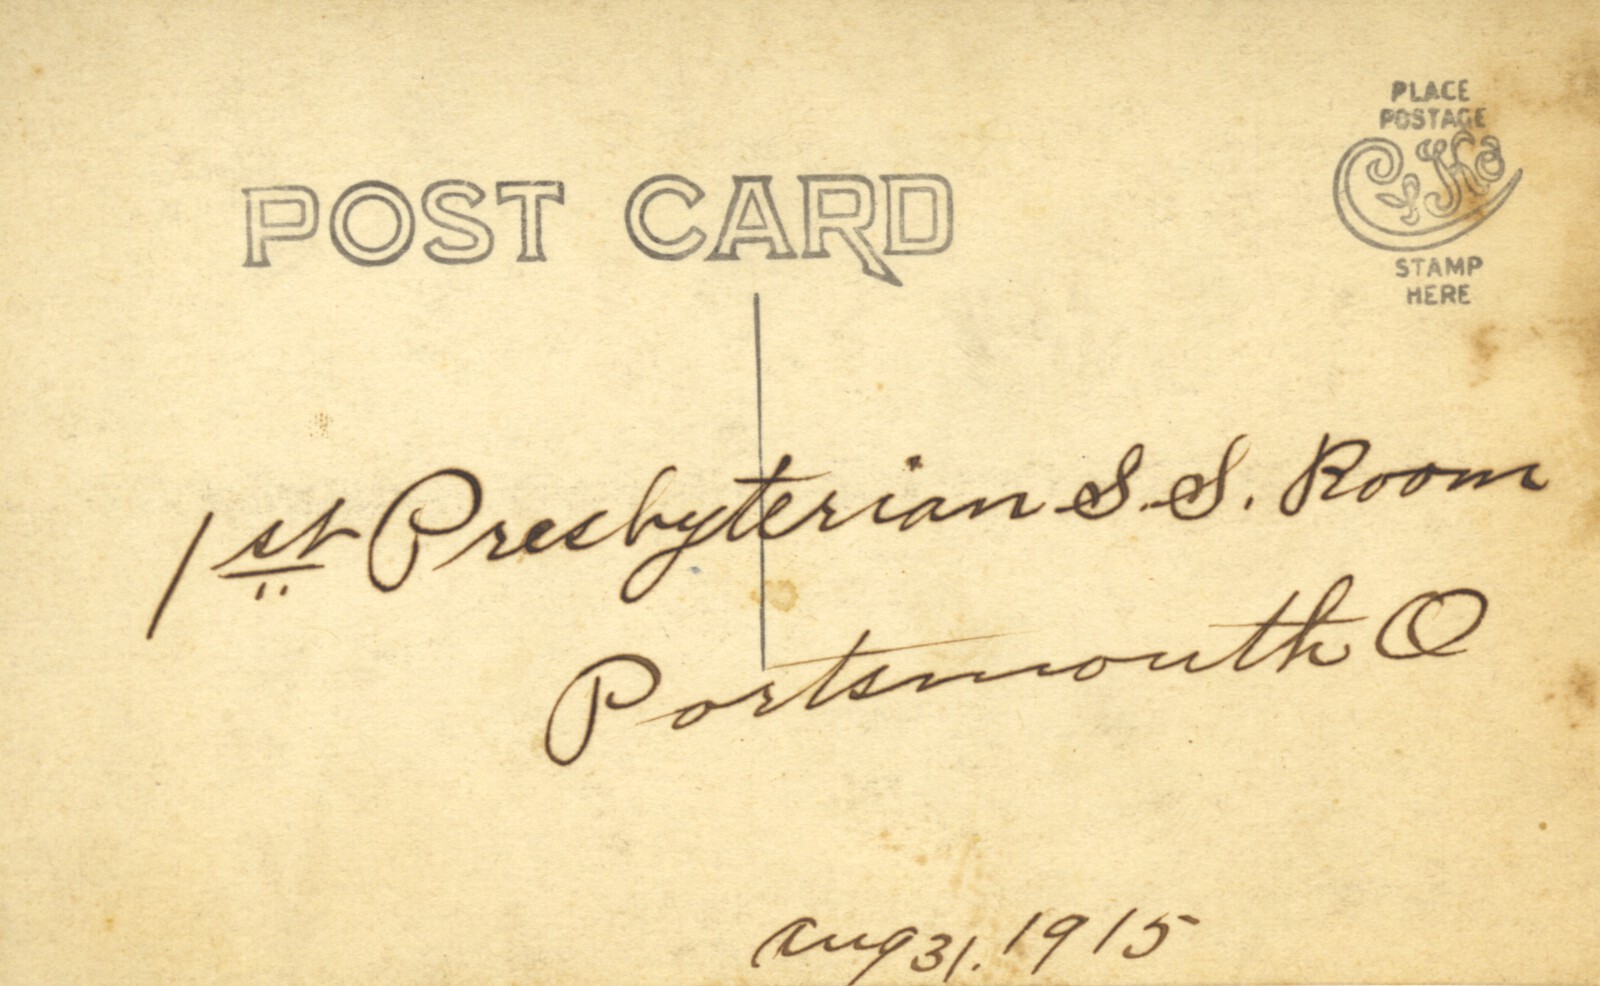 POST CARD
PLACE
POSTAGE
CyKo
STAMP
HERE
1st Presbyterian S.S. Room
Portsmouth O
Aug 31. 1915